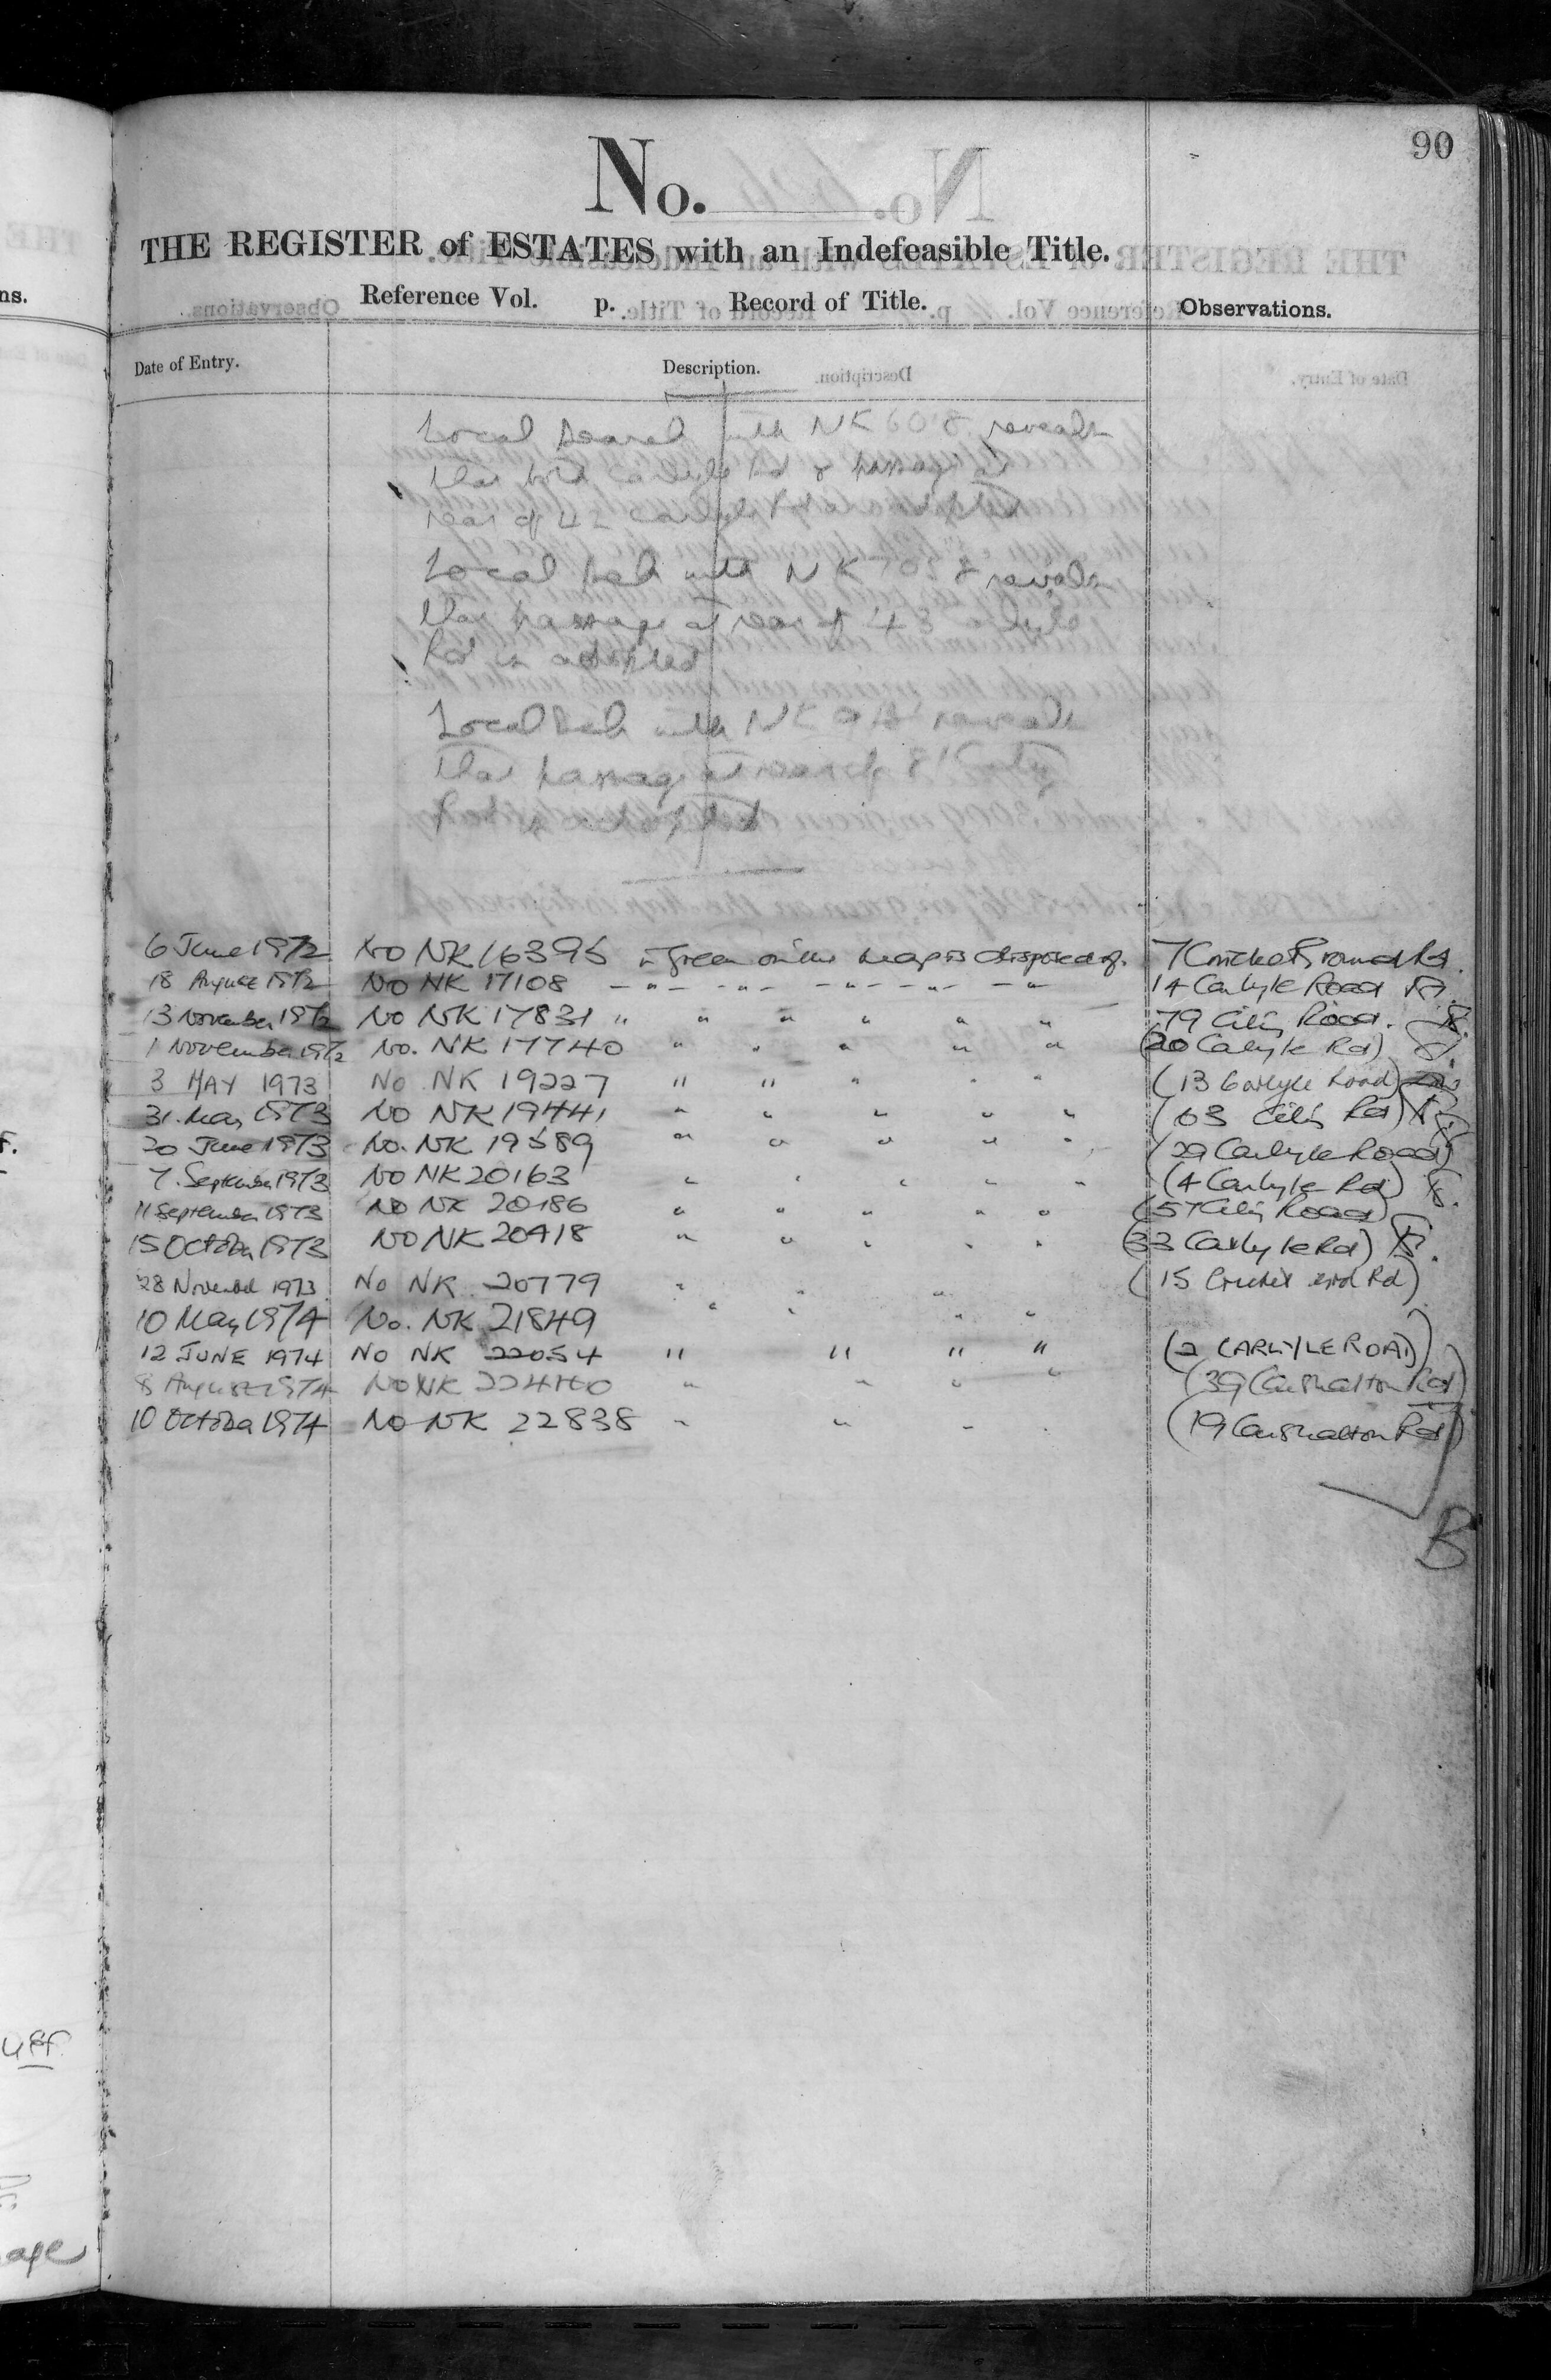 90
No.
THE REGISTER of ESTATES with an Indefeasible Title.
Reference Vol. p. Record of Title. Observations.
Date of Entry. Description.
Local Search with NK 6018 reveals
that both Carlyle Rd & passage at
rear of 42 Carlyle Rd adopted
Local Seh with NK 7058 reveals
that passage at rear of 43 Carlyle
Rd is adopted
Local Seh with NK reveals
that passage at rear of 81 City
Rd is adopted
6 June 1972 No NK 16395 in green on the map is disposed of. 7 Cricket Ground Rd.
18 August 1972 No NK 17108 - " - - " - - " - - " - - " 14 Carlyle Road
13 November 1972 No NK 17831 " " " " " " 79 City Road.
1 November 1972 No. NK 17740 " " " " " (20 Carlyle Rd)
3 MAY 1973 No NK 19227 " " " " " (13 Carlyle Road)
31. May 1973 No NK 19441 " " " " " (63 City Rd)
20 June 1973 No. NK 19589 " " " " " (29 Carlyle Road)
7. September 1973 No NK 20163 " " " " " (4 Carlyle Rd)
11 September 1973 No NK 20186 " " " " " (57 City Road)
15 October 1973 No NK 20418 " " " " " (33 Carlyle Rd)
28 November 1973 No NK 20779 " " " (15 Cricket Grd Rd)
10 May 1974 No. NK 21849 " " " "
12 JUNE 1974 No NK 22054 " " " " (2 CARLYLE ROAD)
8 August 1974 No NK " " " " (39 Carshalton Rd)
10 October 1974 No NK 22838 " " " (19 Carshalton Rd)
B